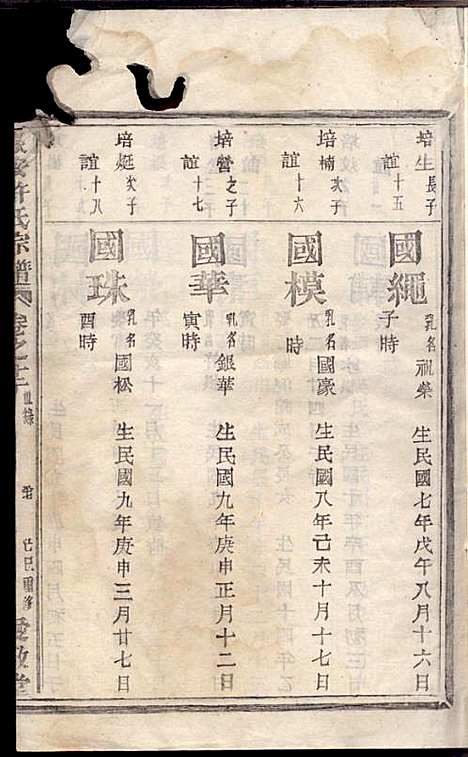 培生長子
誼十五
國繩
乳名祖榮 生民國七年戊午八月十六日
子時
培楠次子
誼十六
國模
乳名國豪 生民國八年己未十月十七日
時
培營之子
誼十七
國華
乳名銀華 生民國九年庚申正月十二日
寅時
培烶次子
誼十八
國珠
乳名國松 生民國九年庚申三月廿七日
酉時
許氏宗譜 卷之十三 世錄 己巳續修 愛敬堂